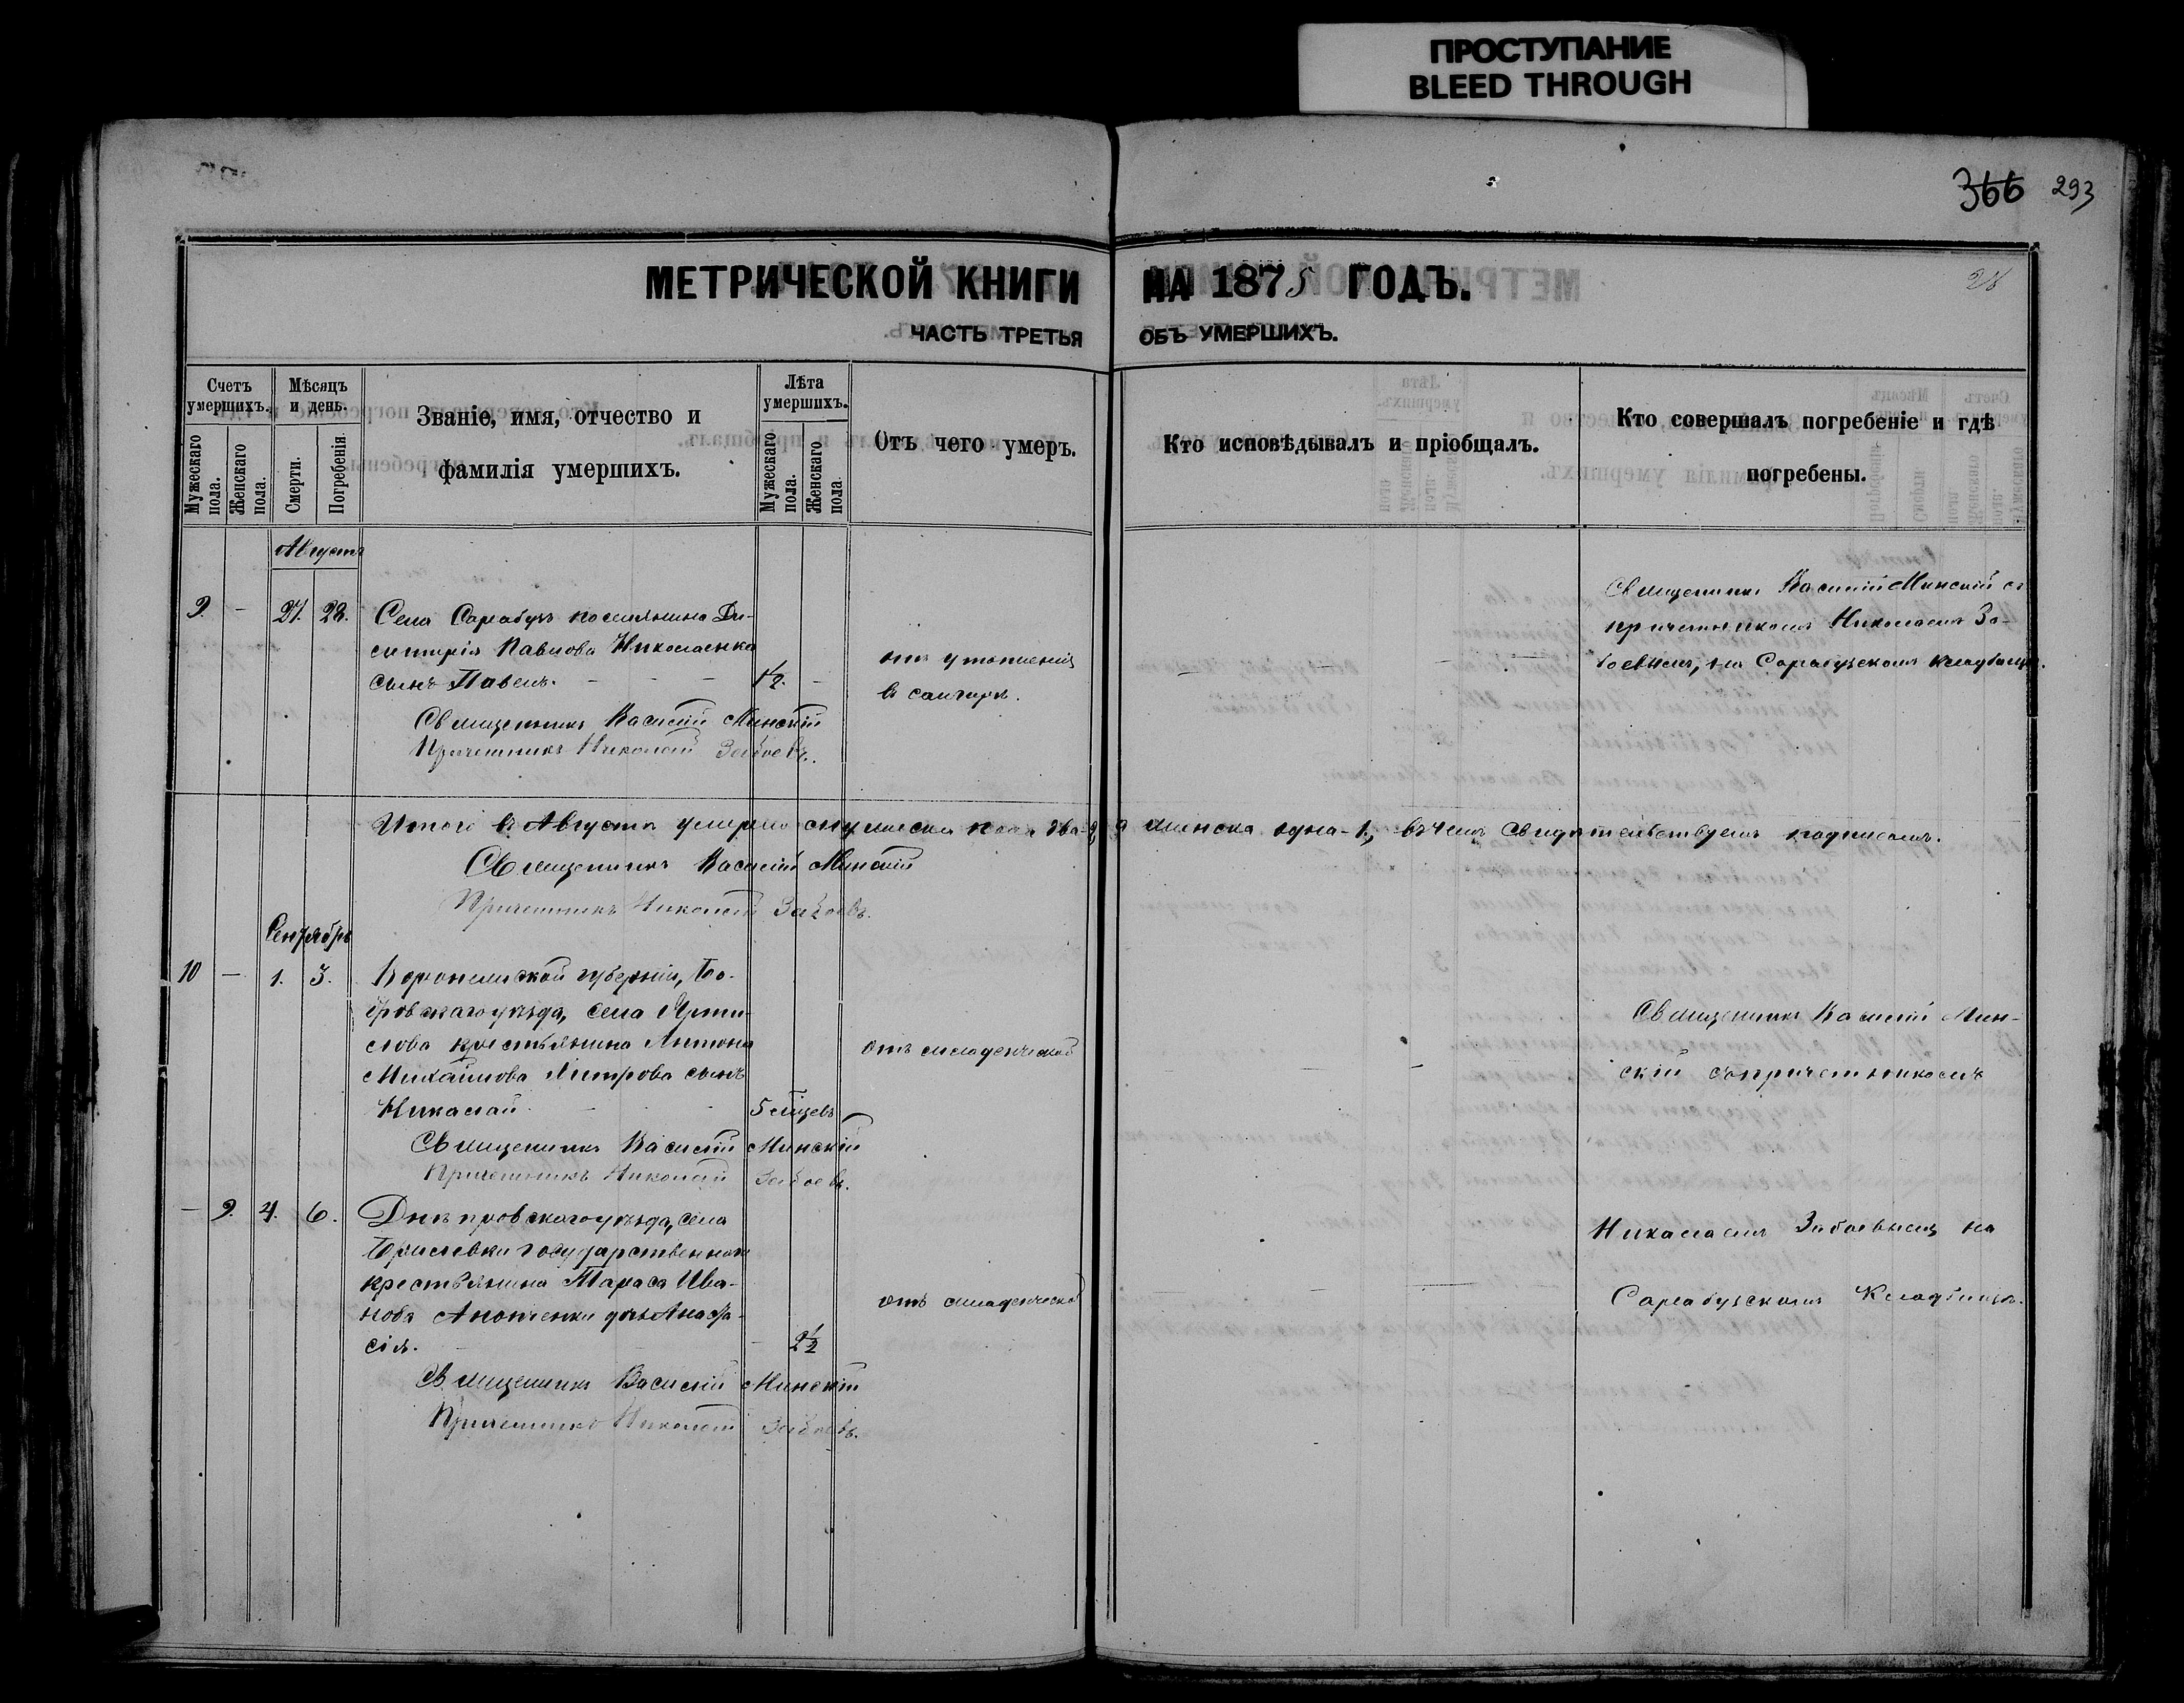 ПРОСТУПАНИЕ
BLEED THROUGH
366 293
МЕТРИЧЕСКОЙ КНИГИ НА 1875 ГОДЪ.
28
ЧАСТЬ ТРЕТЬЯ ОБЪ УМЕРШИХЪ.
Счетъ умершихъ.
Мужескаго пола.
Женскаго пола.
Мѣсяцъ и день.
Смерти.
Погребенія.
Званіе, имя, отчество и
фамилія умершихъ.
Лѣта умершихъ.
Мужескаго пола.
Женскаго пола.
Отъ чего умеръ.
Кто исповѣдывалъ и пріобщалъ.
Кто совершалъ погребеніе и гдѣ
погребены.
Августъ
9. - 27. 28. Села Сарабузъ поселянина Ди-
митрія Павлова Николаенка
сынъ Павелъ. - - - 1/2. -
отъ утопленія
въ
Священникъ Василій Минскій съ
причетникомъ Николаемъ За-
боевымъ, на Сарабузскомъ кладбищѣ.
Священникъ Василій Минскій
Причетникъ Николай Забоевъ.
Итого въ Августѣ умерло мужеска пола два-2, а женска одна-1, въ чемъ свидѣтельствуемъ подписомъ.
Священникъ Василій Минскій
Причетникъ Николай Забоевъ.
Сентябрь
10 - 1. 3. Воронежской губерніи, Бо-
бровскаго уѣзда, села
крестьянина Антона
Михайлова сынъ
Николай - - 5 мѣсцевъ
отъ младенческой
Священникъ Василій Минскій
Причетникъ Николай Забоевъ.
- 9. 4. 6. Днѣпровскаго уѣзда, села
государственнаго
крестьянина Тараса Ива-
нова дочь Анаста-
сія. - 2 1/2
отъ младенческой
Священникъ Василій Минскій
Причетникъ Николай Забоевъ.
Священникъ Василій Мин-
скій съ причетникомъ
Николаемъ Забоевымъ на
Сарабузскомъ кладбищѣ.